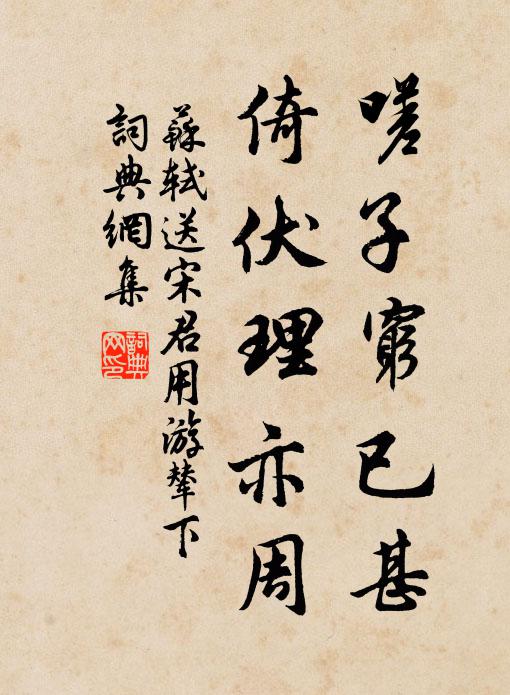 嗟子窮已甚
倚伏理亦周
蘇軾送宋君用游輦下
詞典網集
詞典網印